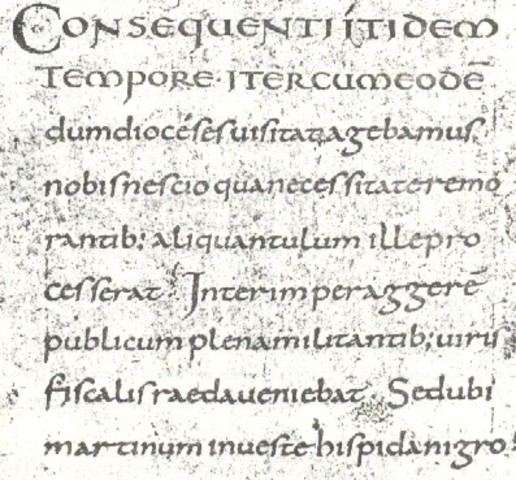 CONSEQUENTI ITIDEM
TEMPORE· ITERCUMEODĒ
dumdiocésesuisitatagebamus·
nobisnescioquanecessitateremo
rantib: aliquantulum illepro
cesserat· Interimperaggerē
publicumplenamilitantib; uiris
fiscalisraedaueniebat· Sedubi
martinuminuestehispidanigro